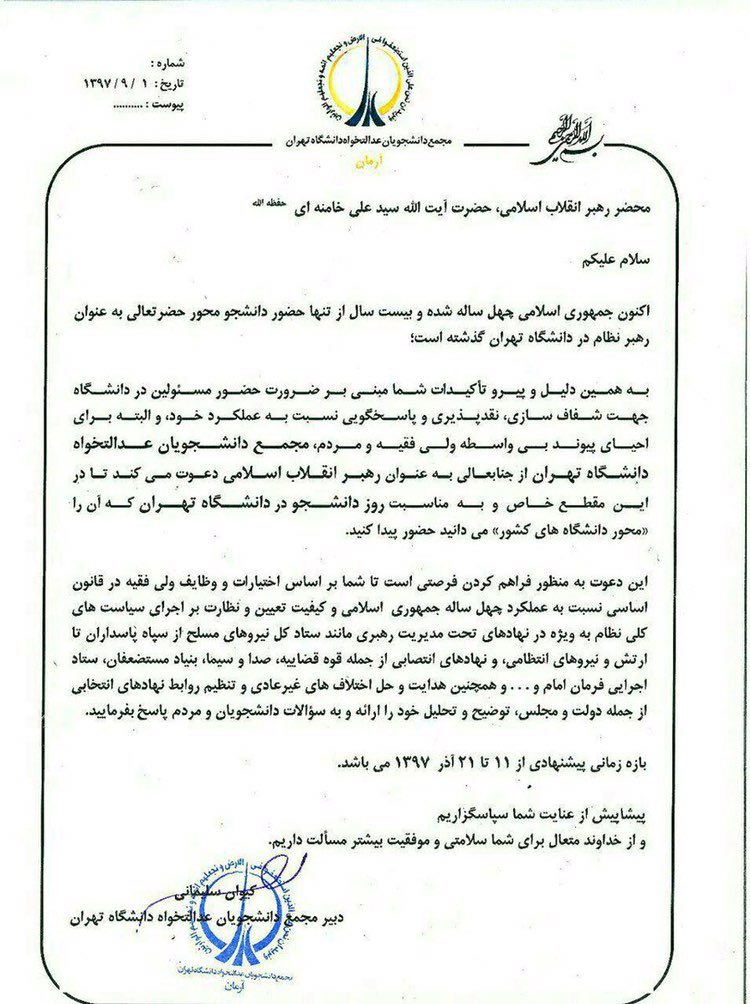 شماره :
تاریخ : ۱ / ۹ / ۱۳۹۷
پیوست : ..........
مجمع دانشجویان عدالتخواه دانشگاه تهران
آرمان
محضر رهبر انقلاب اسلامی، حضرت آیت الله سید علی خامنه ای حفظه الله
سلام علیکم
اکنون جمهوری اسلامی چهل ساله شده و بیست سال از تنها حضور دانشجو محور حضرتعالی به عنوان
رهبر نظام در دانشگاه تهران گذشته است؛
به همین دلیل و پیرو تأکیدات شما مبنی بر ضرورت حضور مسئولین در دانشگاه
جهت شفاف سازی، نقدپذیری و پاسخگویی نسبت به عملکرد خود، و البته برای
احیای پیوند بی واسطه ولی فقیه و مردم، مجمع دانشجویان عدالتخواه
دانشگاه تهران از جنابعالی به عنوان رهبر انقلاب اسلامی دعوت می کند تا در
این مقطع خاص و به مناسبت روز دانشجو در دانشگاه تهران که آن را
«محور دانشگاه های کشور» می دانید حضور پیدا کنید.
این دعوت به منظور فراهم کردن فرصتی است تا شما بر اساس اختیارات و وظایف ولی فقیه در قانون
اساسی نسبت به عملکرد چهل ساله جمهوری اسلامی و کیفیت تعیین و نظارت بر اجرای سیاست های
کلی نظام به ویژه در نهادهای تحت مدیریت رهبری مانند ستاد کل نیروهای مسلح از سپاه پاسداران تا
ارتش و نیروهای انتظامی، و نهادهای انتصابی از جمله قوه قضاییه، صدا و سیما، بنیاد مستضعفان، ستاد
اجرایی فرمان امام و . . . و همچنین هدایت و حل اختلاف های غیرعادی و تنظیم روابط نهادهای انتخابی
از جمله دولت و مجلس، توضیح و تحلیل خود را ارائه و به سؤالات دانشجویان و مردم پاسخ بفرمایید.
بازه زمانی پیشنهادی از ۱۱ تا ۲۱ آذر ۱۳۹۷ می باشد.
پیشاپیش از عنایت شما سپاسگزاریم
و از خداوند متعال برای شما سلامتی و موفقیت بیشتر مسألت داریم.
کیوان سلیمانی
دبیر مجمع دانشجویان عدالتخواه دانشگاه تهران
مجمع دانشجویان عدالتخواه دانشگاه تهران
آرمان